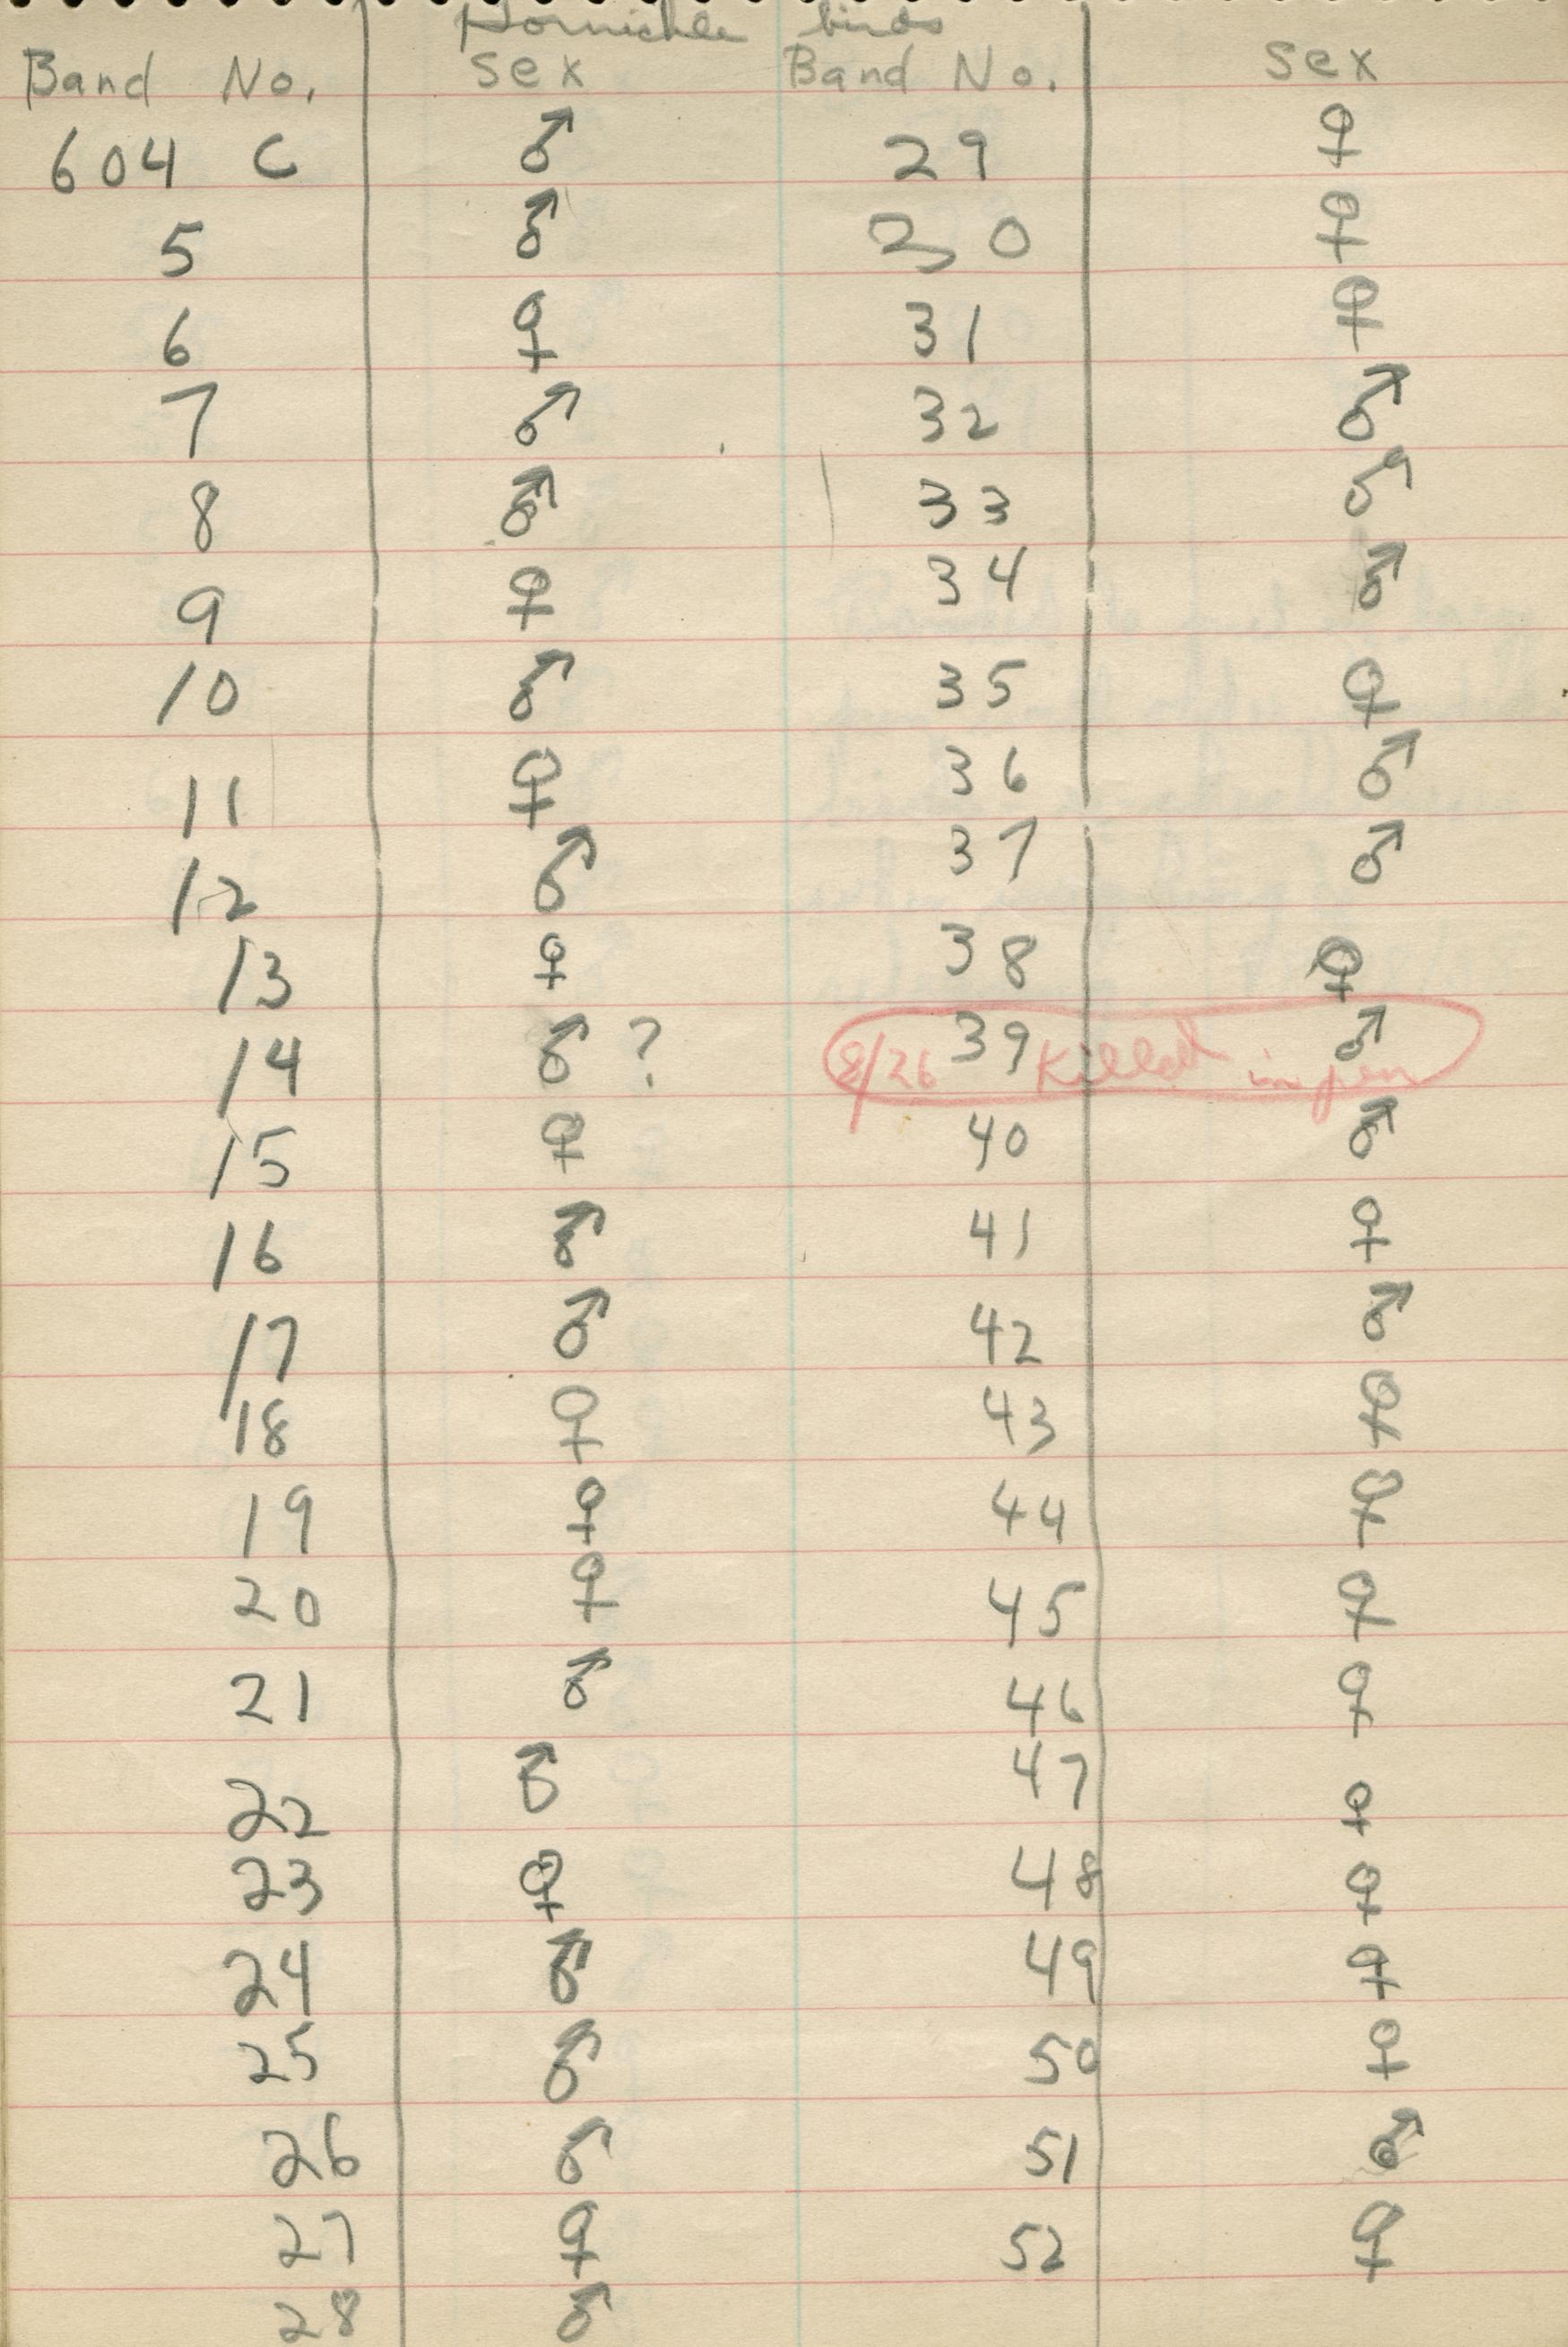 birds
Band No. Sex Band No. Sex
604 C ♂ 29 ♀
5 ♂ 30 ♀
6 ♀ 31 ♀
7 ♂ 32 ♂
8 ♂ 33 ♂
9 ♀ 34 ♂
10 ♂ 35 ♀
11 ♀ 36 ♂
12 ♂ 37 ♂
13 ♀ 38 ♀
14 ♂ ? 39 ♂
8/26 Killed in pen
15 ♀ 40 ♂
16 ♂ 41 ♀
17 ♂ 42 ♂
18 ♀ 43 ♀
19 ♀ 44 ♀
20 ♀ 45 ♀
21 ♂ 46 ♀
22 ♂ 47 ♀
23 ♀ 48 ♀
24 ♂ 49 ♀
25 ♂ 50 ♀
26 ♂ 51 ♂
27 ♀ 52 ♀
28 ♂